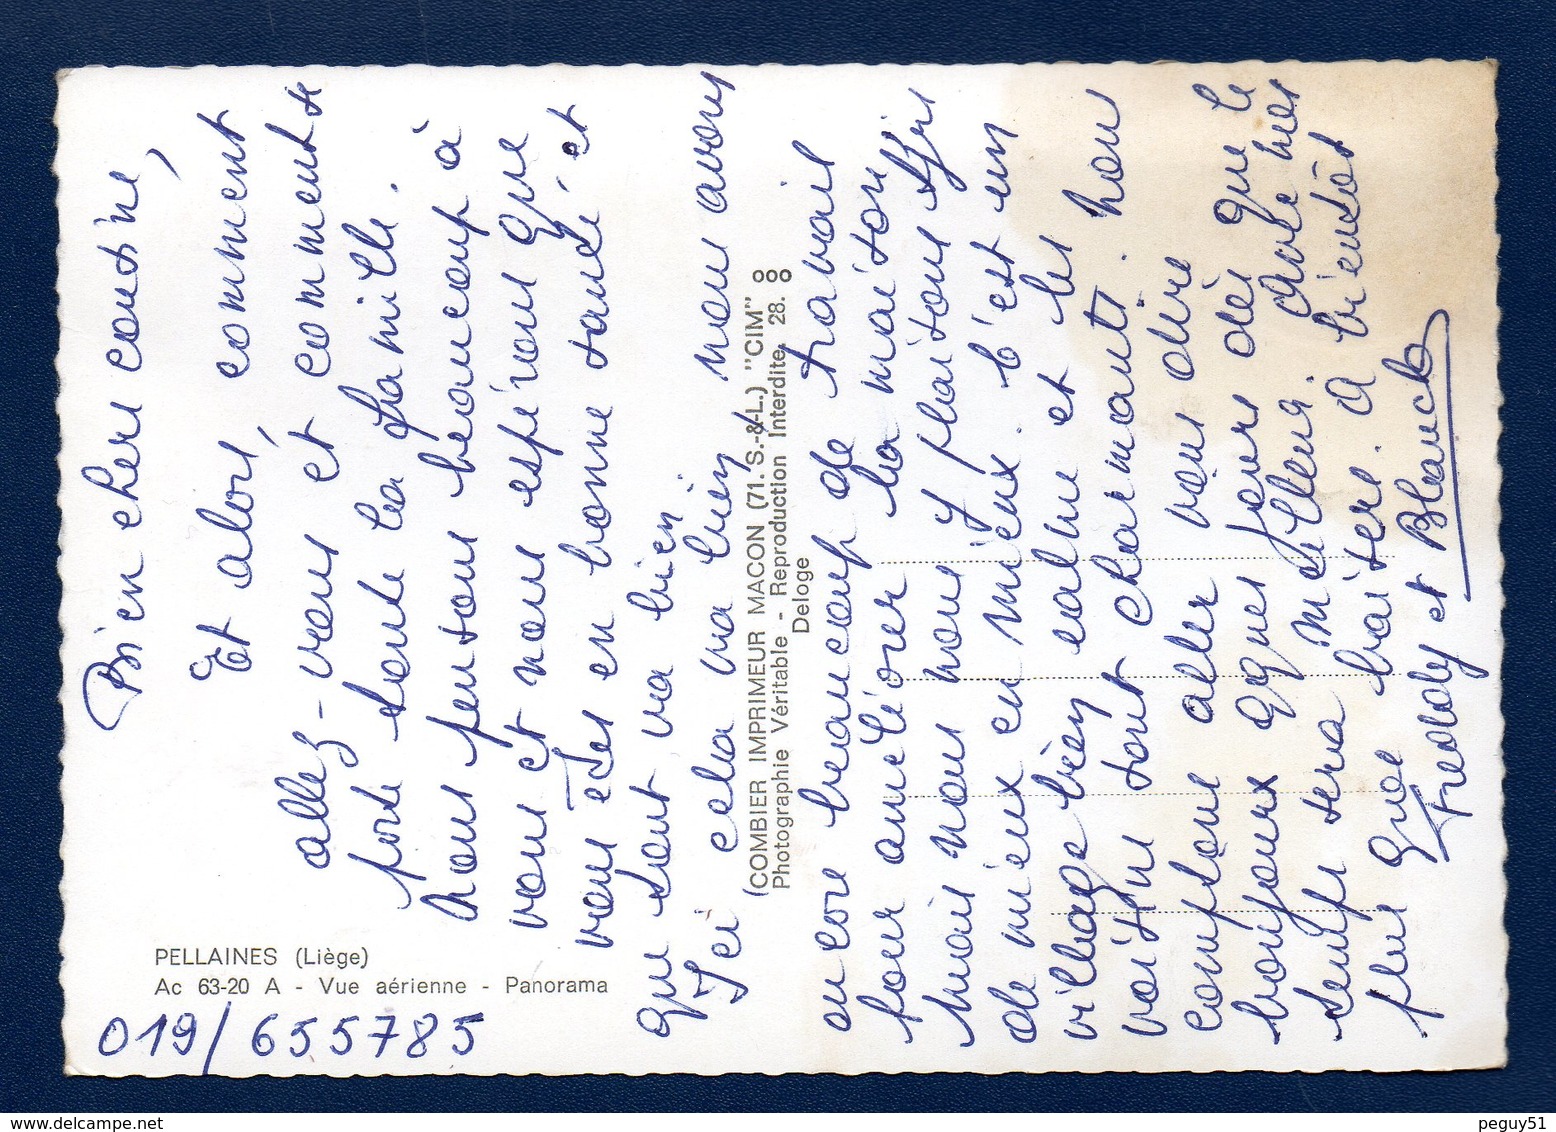 PELLAINES (Liège)
Ac 63-20 A - Vue aérienne - Panorama
019/655785
Bien chers cousine,
Et alors, comment
allez-vous et comment se
porte toute la famille.
Nous pensons beaucoup à
vous et nous espérons que
vous êtes en bonne santé, et
que tout va bien
Ici cela va bien, nous avons
encore beaucoup de travail
pour améliorer la maison
mais nous nous y plaisons
de mieux en mieux. C'est un
village bien calme et les
voisins sont charmants. Nous
comptons aller vous dire
bonjoure qques jours dès que le
temps sera meilleur. Avec nos
plus gros baisers. A bientôt
Freddy et Blanche
(COMBIER IMPRIMEUR MACON (71. S.-&-L.) "CIM"
Photographie Véritable - Reproduction Interdite. 28.
Deloge
peguy51